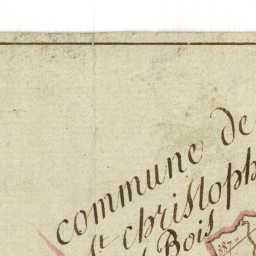 commune de
St christoph
Bois
887